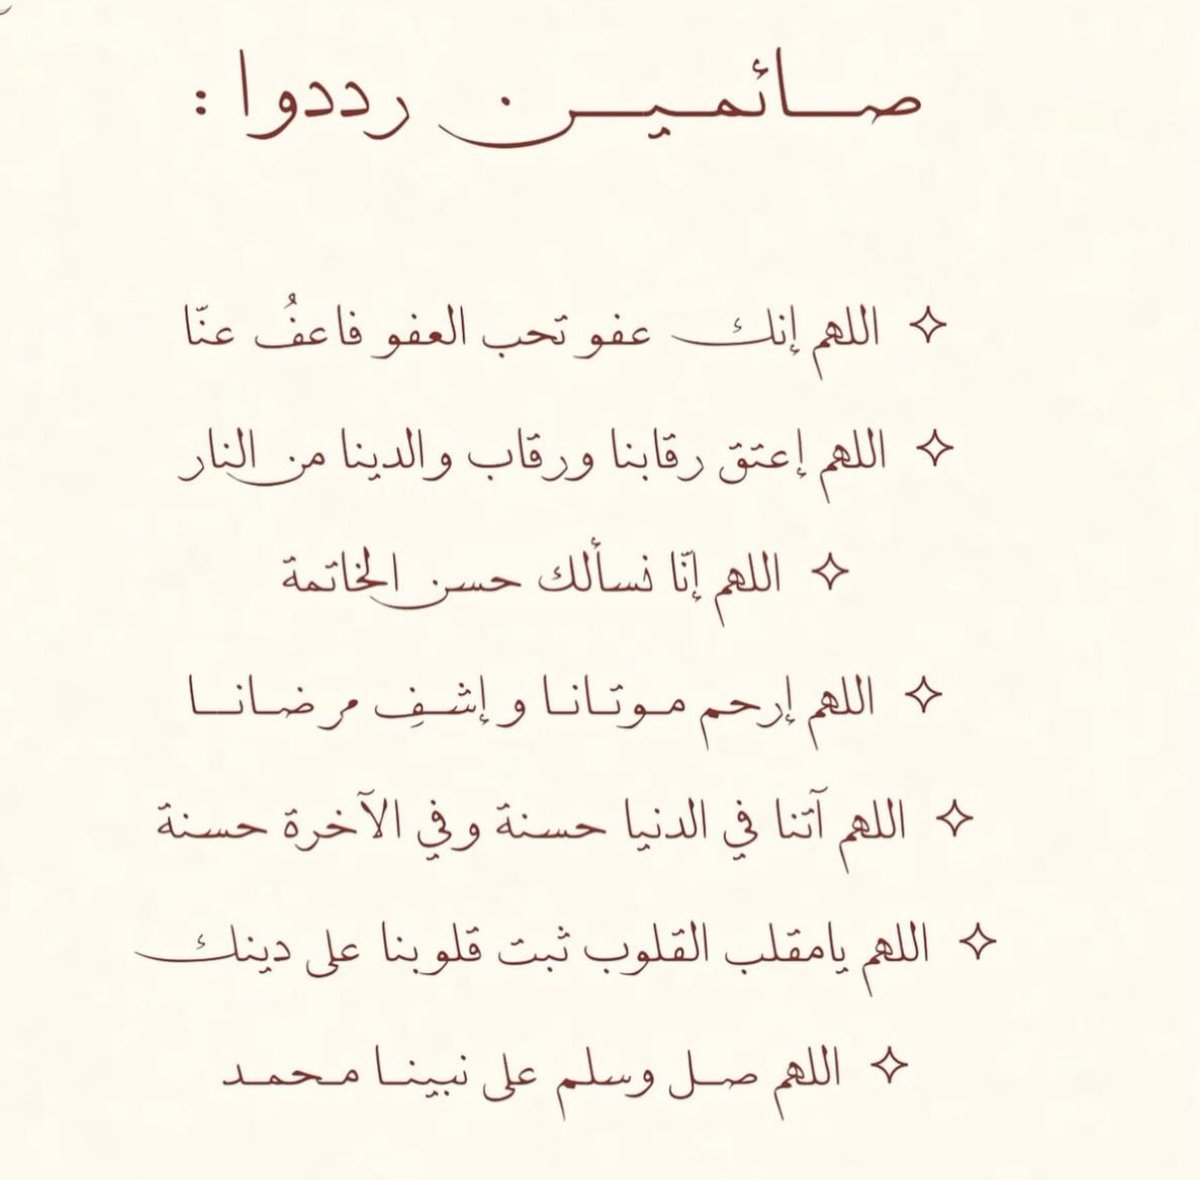 صائمين رددوا :
✧ اللهم إنك عفو تحب العفو فاعفُ عنّا
✧ اللهم إعتق رقابنا ورقاب والدينا من النار
✧ اللهم إنّا نسألك حسن الخاتمة
✧ اللهم إرحم موتانا وإشفِ مرضانا
✧ اللهم آتنا في الدنيا حسنة وفي الآخرة حسنة
✧ اللهم يامقلب القلوب ثبت قلوبنا على دينك
✧ اللهم صل وسلم على نبينا محمد